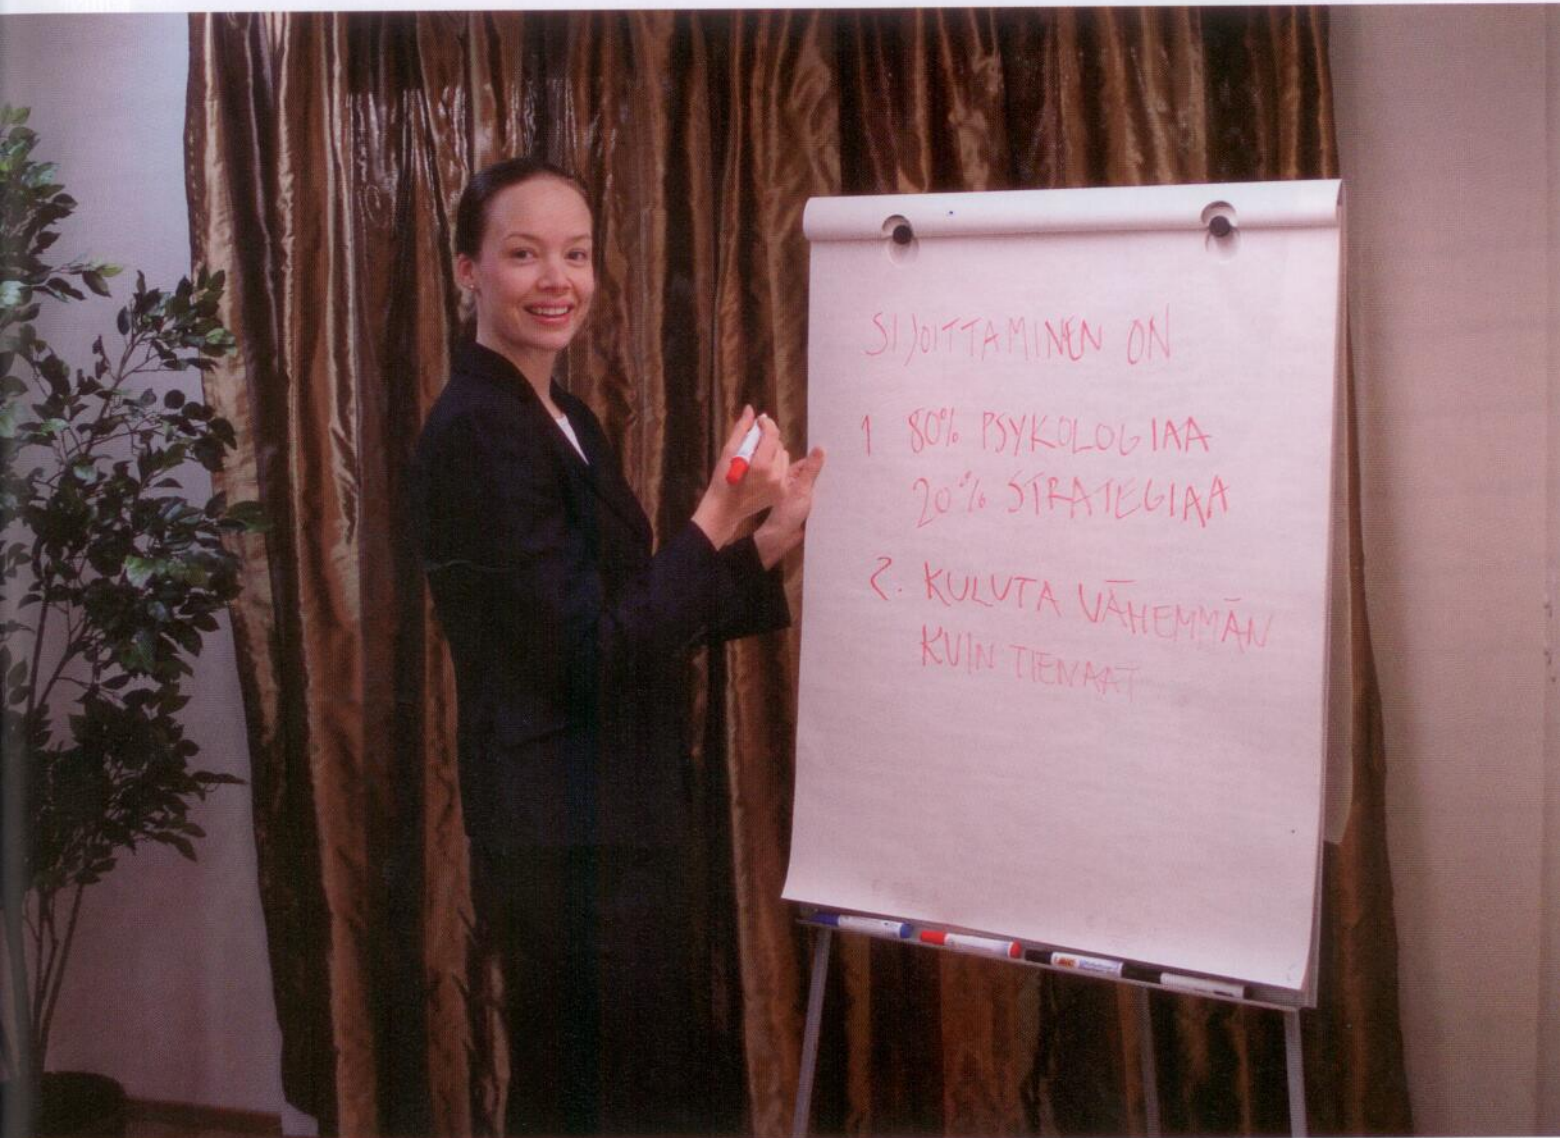 SIJOITTAMINEN ON
1 80% PSYKOLOGIAA
20% STRATEGIAA
2. KULUTA VÄHEMMÄN
KUIN TIENAAT
BIC